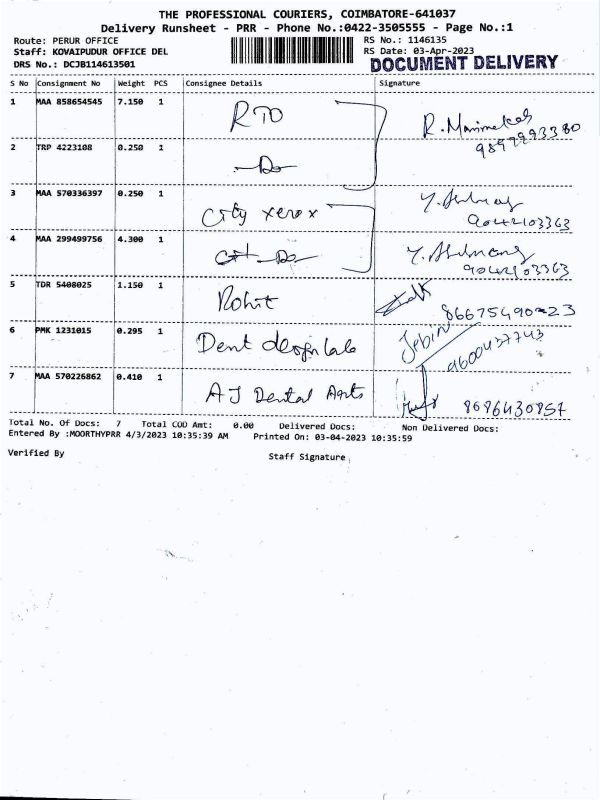 THE PROFESSIONAL COURIERS, COIMBATORE-641037
Delivery Runsheet - PRR - Phone No.:0422-3505555 - Page No.:1
Route: PERUR OFFICE RS No.: 1146135
Staff: KOVAIPUDUR OFFICE DEL RS Date: 03-Apr-2023
DRS No.: DCJB114613501 DOCUMENT DELIVERY
S No Consignment No Weight PCS Consignee Details Signature
1 MAA 858654545 7.150 1 RTO
2 TRP 4223108 0.250 1 -Do-
3 MAA 570336397 0.250 1 City xerox 9042103363
4 MAA 299499756 4.300 1 -Do- 9042103363
5 TDR 5408025 1.150 1 Rohit
6 PMK 1231015 0.295 1 Dent design labs Jebin 9600437743
7 MAA 570226862 0.410 1 AJ Dental Arts 8686430857
Total No. Of Docs: 7 Total COD Amt: 0.00 Delivered Docs: Non Delivered Docs:
Entered By :MOORTHYPRR 4/3/2023 10:35:39 AM Printed On: 03-04-2023 10:35:59
Verified By Staff Signature